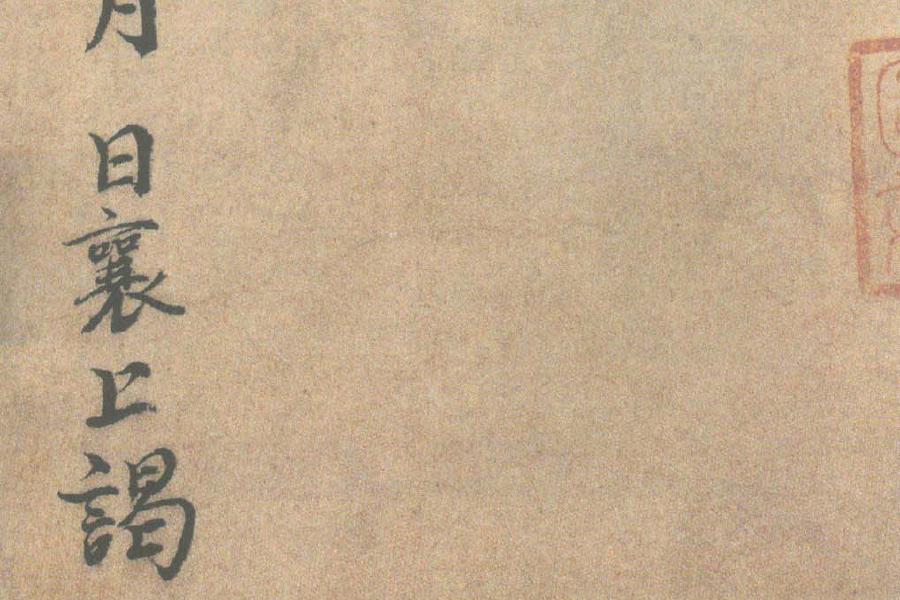 月日襄上謁